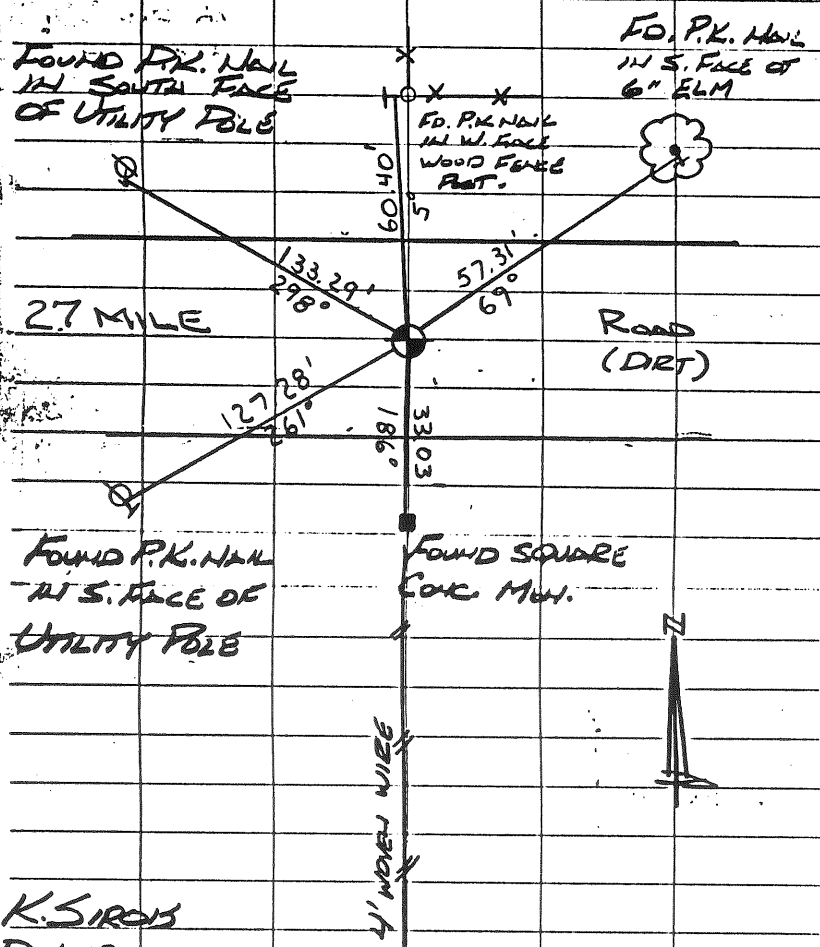 FOUND P.K. NAIL
IN SOUTH FACE
OF UTILITY POLE
FD. P.K. NAIL
IN S. FACE OF
6" ELM
FD. P.K NAIL
IN W. FACE
WOOD FENCE
POST.
60.40'
5°
133.29'
298°
57.31'
69°
27 MILE
ROAD
(DIRT)
127.28'
261°
33.03
186°
FOUND P.K. NAIL
IN S. FACE OF
UTILITY POLE
FOUND SQUARE
CONC. MON.
N
4' WOVEN WIRE
K. SIROIS